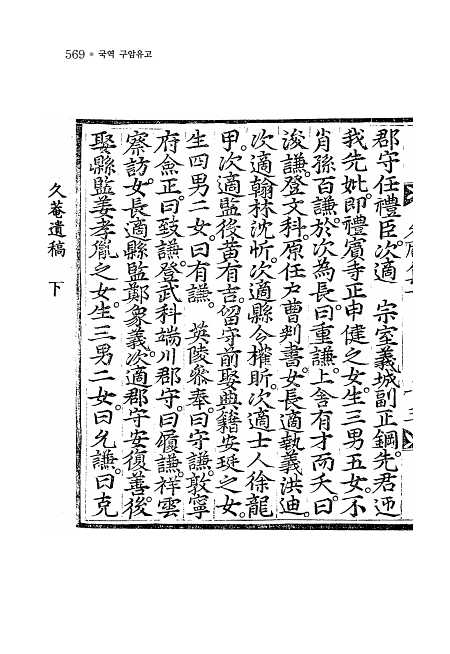 569 ● 국역 구암유고
郡守任禮臣。次適 宗室義城副正鋼。先君迎
我先妣。卽禮賓寺正申健之女。生三男五女。不
肖孫百謙。於次為長。曰重謙。上舍有才而夭。曰
浚謙。登文科。原任戶曹判書。女長適執義洪迪。
次適翰林沈忻。次適縣令權昕。次適士人徐龍
甲。次適監役黃有吉。留守前娶典籍安珽之女。
生四男二女。曰有謙。 英陵參奉。曰守謙。敦寧
府僉正。曰致謙。登武科端川郡守。曰履謙。祥雲
察訪。女長適縣監鄭象義。次適郡守安復善。後
娶縣監姜孝胤之女。生三男二女。曰允謙。曰克
久菴遺稿 下